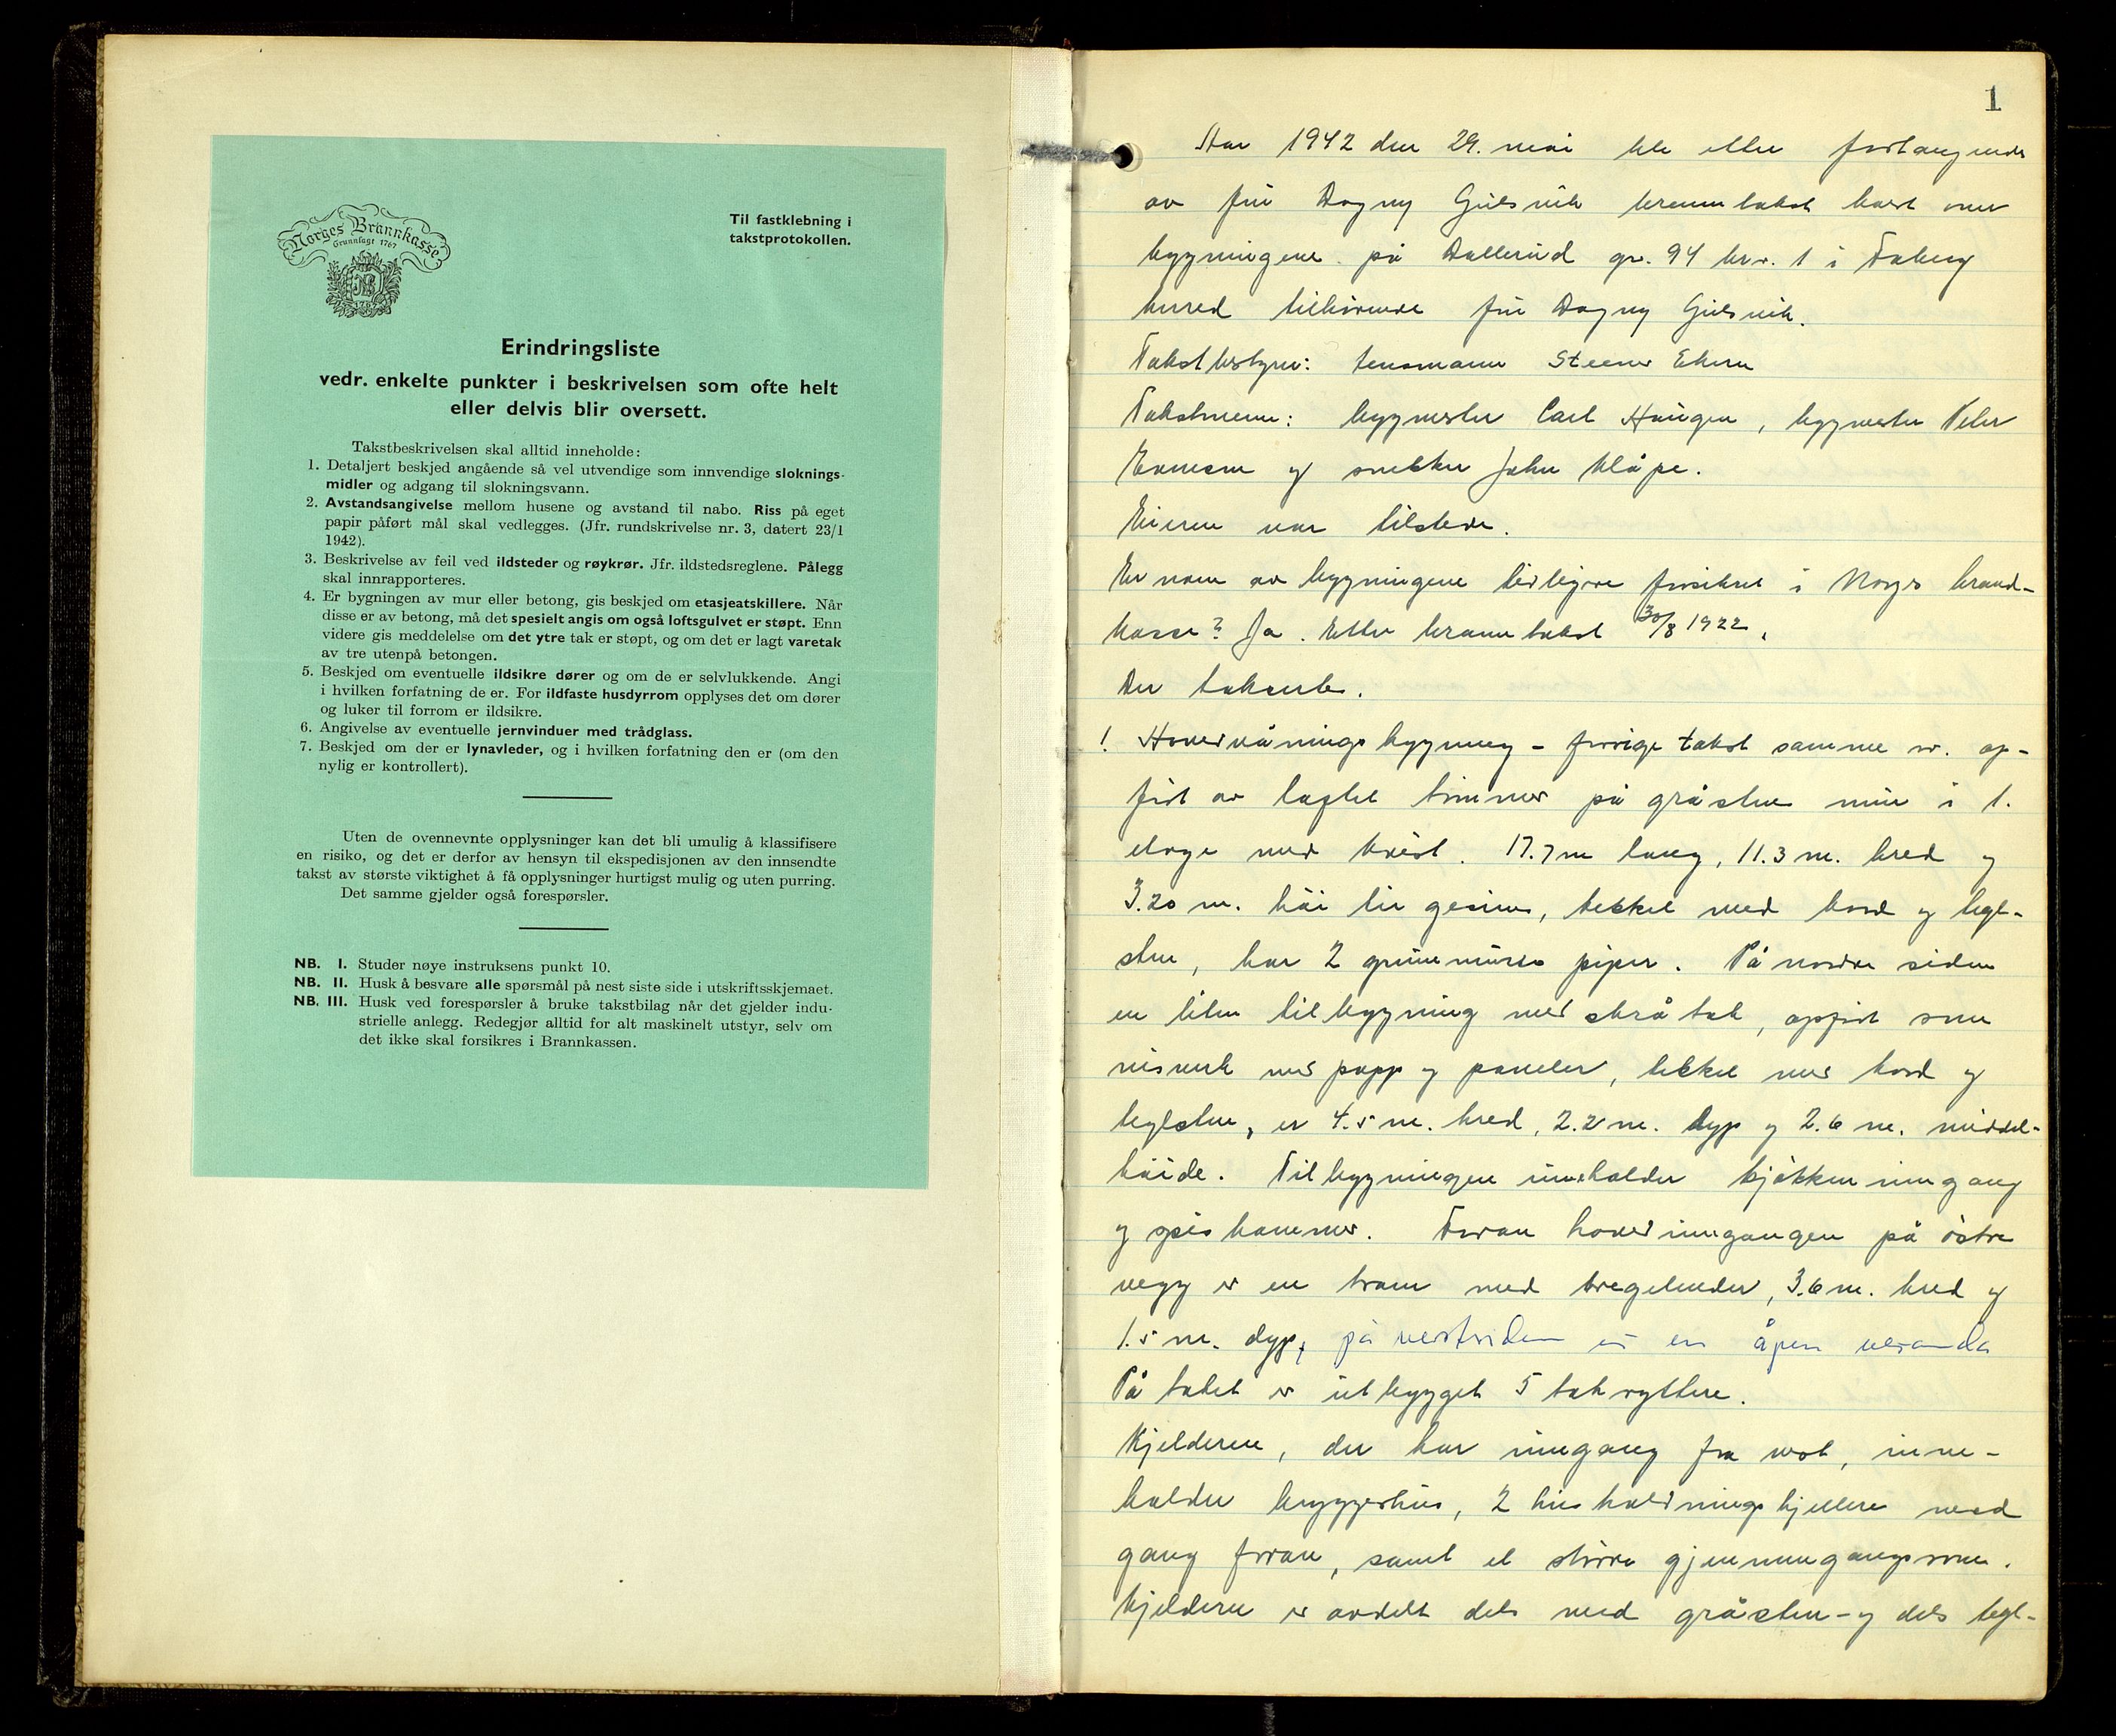 Norges Brannkasse
Grunnlagt 1767
NB
1767
Til fastklebning i
takstprotokollen.
Erindringsliste
vedr. enkelte punkter i beskrivelsen som ofte helt
eller delvis blir oversett.
Takstbeskrivelsen skal alltid inneholde:
1. Detaljert beskjed angående så vel utvendige som innvendige sloknings-
midler og adgang til slokningsvann.
2. Avstandsangivelse mellom husene og avstand til nabo. Riss på eget
papir påført mål skal vedlegges. (Jfr. rundskrivelse nr. 3, datert 23/1
1942).
3. Beskrivelse av feil ved ildsteder og røykrør. Jfr. ildstedsreglene. Pålegg
skal innrapporteres.
4. Er bygningen av mur eller betong, gis beskjed om etasjeatskillere. Når
disse er av betong, må det spesielt angis om også loftsgulvet er støpt. Enn
videre gis meddelelse om det ytre tak er støpt, og om det er lagt varetak
av tre utenpå betongen.
5. Beskjed om eventuelle ildsikre dører og om de er selvlukkende. Angi
i hvilken forfatning de er. For ildfaste husdyrrom opplyses det om dører
og luker til forrom er ildsikre.
6. Angivelse av eventuelle jernvinduer med trådglass.
7. Beskjed om der er lynavleder, og i hvilken forfatning den er (om den
nylig er kontrollert).
Uten de ovennevnte opplysninger kan det bli umulig å klassifisere
en risiko, og det er derfor av hensyn til ekspedisjonen av den innsendte
takst av største viktighet å få opplysninger hurtigst mulig og uten purring.
Det samme gjelder også forespørsler.
NB. I. Studer nøye instruksens punkt 10.
NB. II. Husk å besvare alle spørsmål på nest siste side i utskriftsskjemaet.
NB. III. Husk ved forespørsler å bruke takstbilag når det gjelder indu-
strielle anlegg. Redegjør alltid for alt maskinelt utstyr, selv om
det ikke skal forsikres i Brannkassen.
1
År 1942 den 29. mai ble etter forlangende
av fru Dagny Gulsvik branntakst havt over
bygningene på Dallerud gr. 94 br.nr. 1 i Fåberg
herred tilhørende fru Dagny Gulsvik.
Takstbestyrer: lensmann Steener Ekern
Takstmenn: byggmester Carl Haugen, byggmester Peter
Evensen og snekker John Klåpe.
Eieren var tilstede.
Er noen av bygningene tidligere forsikret i Norges brand-
kasse? Ja. Etter branntakst 30/8 1922.
Der takserte.
1. Hovedvåningsbygning - forrige takst samme nr. op-
ført av laftet tømmer på gråsten mur i 1.
etage med kvist. 17.7 m lang, 11.3 m. bred og
3.20 m. høi til gesims, tekket med bord og tegl-
sten, har 2 grunnmurte piper. På nordre siden
en liten tilbygning med skråtak, oppført som
reisverk med papp og paneler, tekket med bord og
teglsten, er 4.5 m. bred, 2.2 m. dyp og 2.6 m. middel-
høide. Tilbygningen inneholder kjøkkeninngang
og spiskammer. Foran hovedinngangen på østre
vegg er en tram med tregelender, 3.6 m. bred og
1.5 m. dyp, på vestsiden er en åpen veranda
På taket er utbygget 5 takryttere.
Kjelderen, der har inngang fra vest, inne-
holder bryggerhus, 2 husholdningskjellere med
gang foran, samt et større gjennemgangsrom.
Kjelderen er avdelt dels med gråsten- og dels tegl-